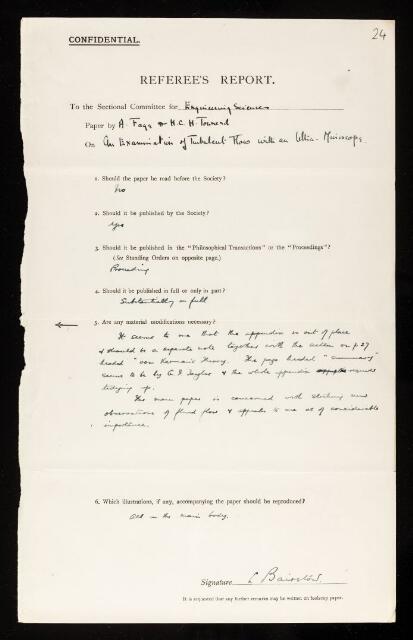 24
CONFIDENTIAL.
REFEREE'S REPORT.
To the Sectional Committee for Engineering Sciences
Paper by A. Fage & H.C.H. Townend
On An Examination of Turbulent Flow with an Ultra-Microscope.
1. Should the paper be read before the Society?
No
2. Should it be published by the Society?
Yes
3. Should it be published in the "Philosophical Transactions" or the "Proceedings"?
(See Standing Orders on opposite page.)
Proceedings
4. Should it be published in full or only in part?
Substantially in full
5. Are any material modifications necessary?
It seems to me that the appendix is out of place
& should be a separate note together with the section on p 27
headed "von Karman's Theory. The page headed "summary"
seems to be by G I Taylor & the whole appendix requires
tidying up.
The main paper is concerned with striking new
observations of fluid flow & appeals to me as of considerable
importance.
6. Which illustrations, if any, accompanying the paper should be reproduced?
All in the main body.
Signature L Bairstow
It is requested that any further remarks may be written on foolscap paper.